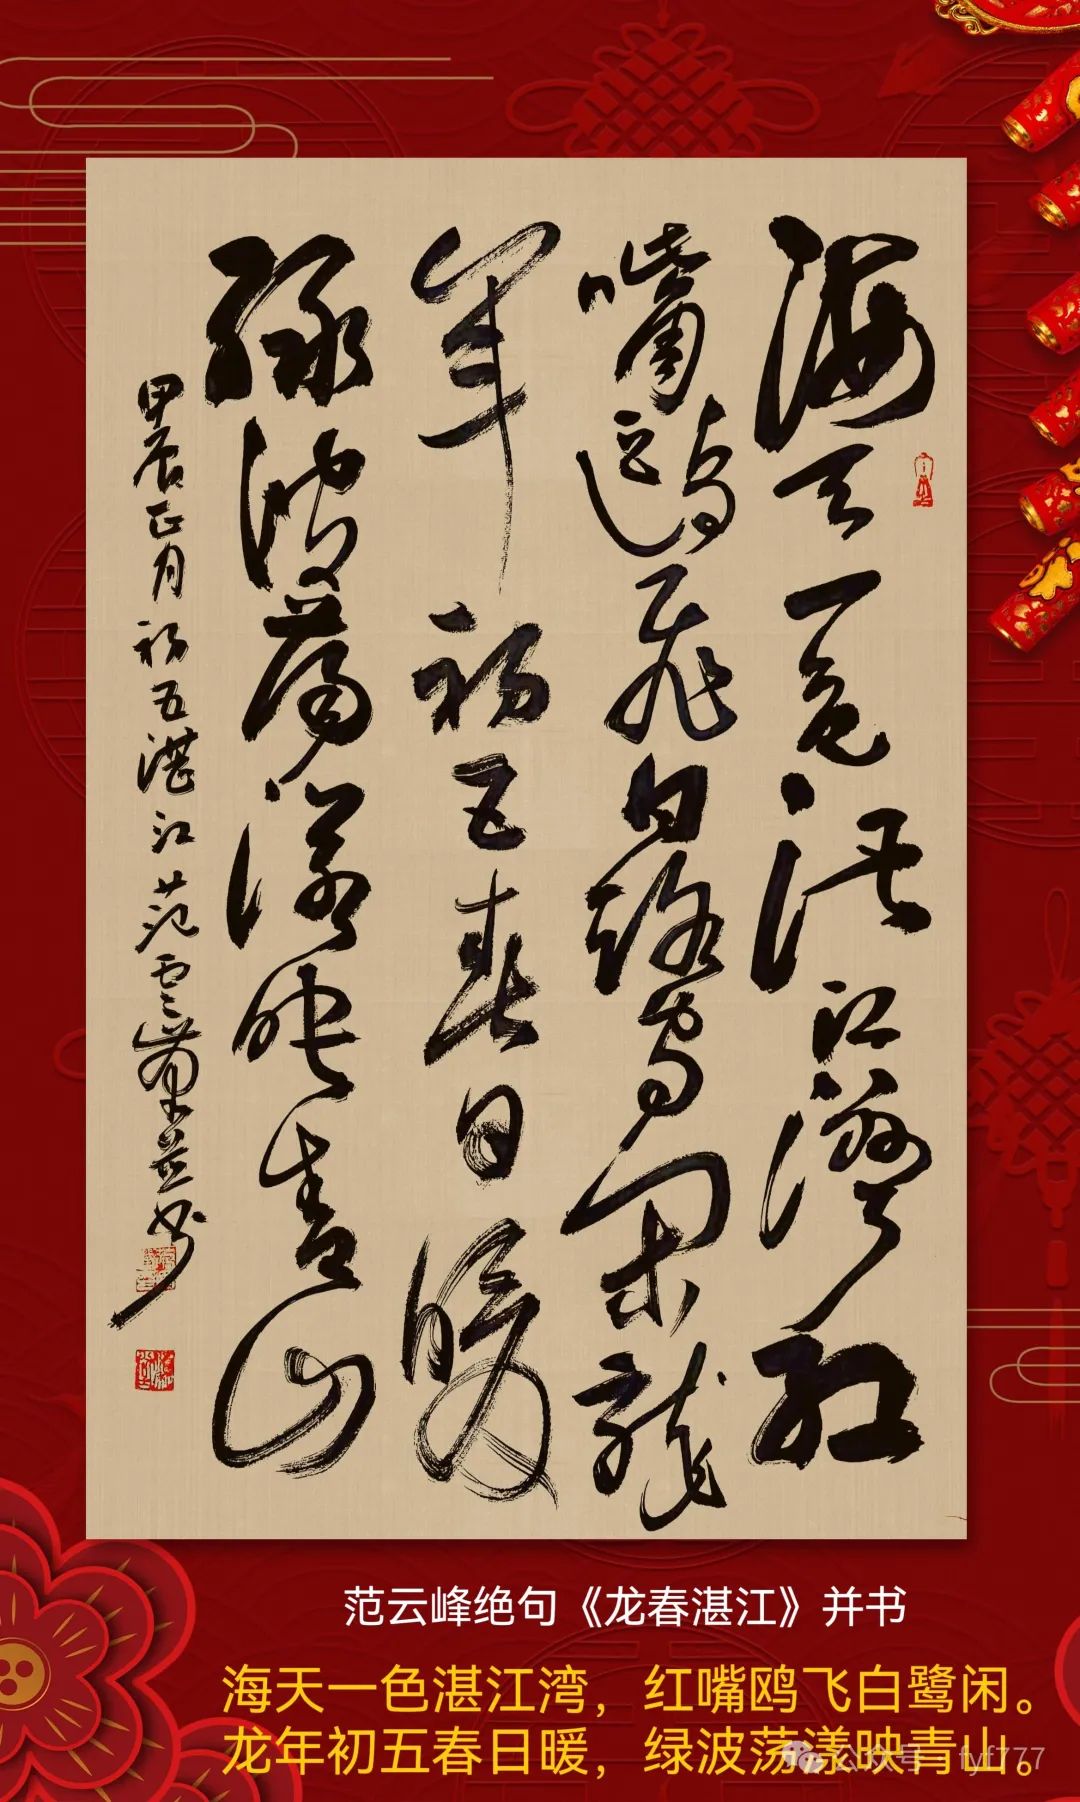 海天一色湛江湾红
嘴鸥飞白鹭闲龙
年初五春日暖
绿波荡漾映青山
甲辰正月初五湛江范云峰并书
范云峰绝句《龙春湛江》并书
海天一色湛江湾，红嘴鸥飞白鹭闲。
龙年初五春日暖，绿波荡漾映青山。
公众号 · fyf777